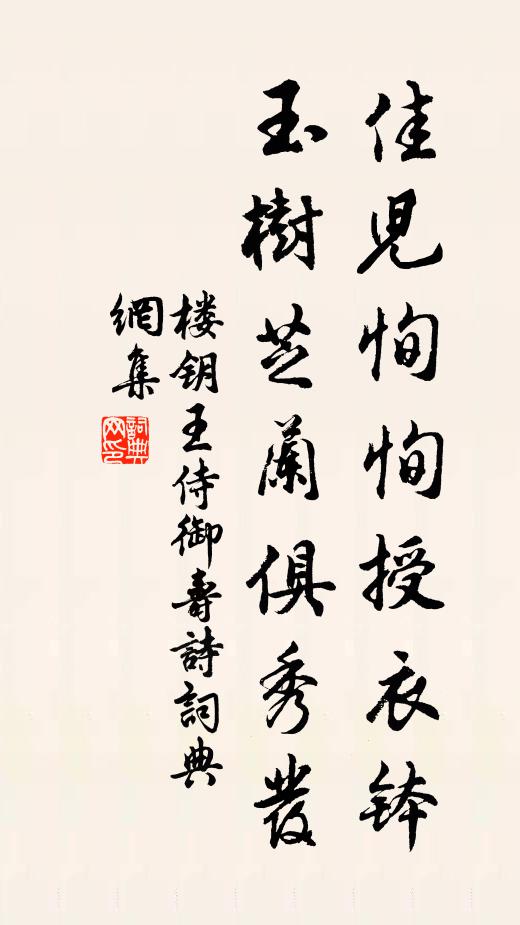 佳児恂恂授衣鉢
玉樹芝蘭俱秀發
楼钥王侍御寿詩詞典
網集
詞典網印